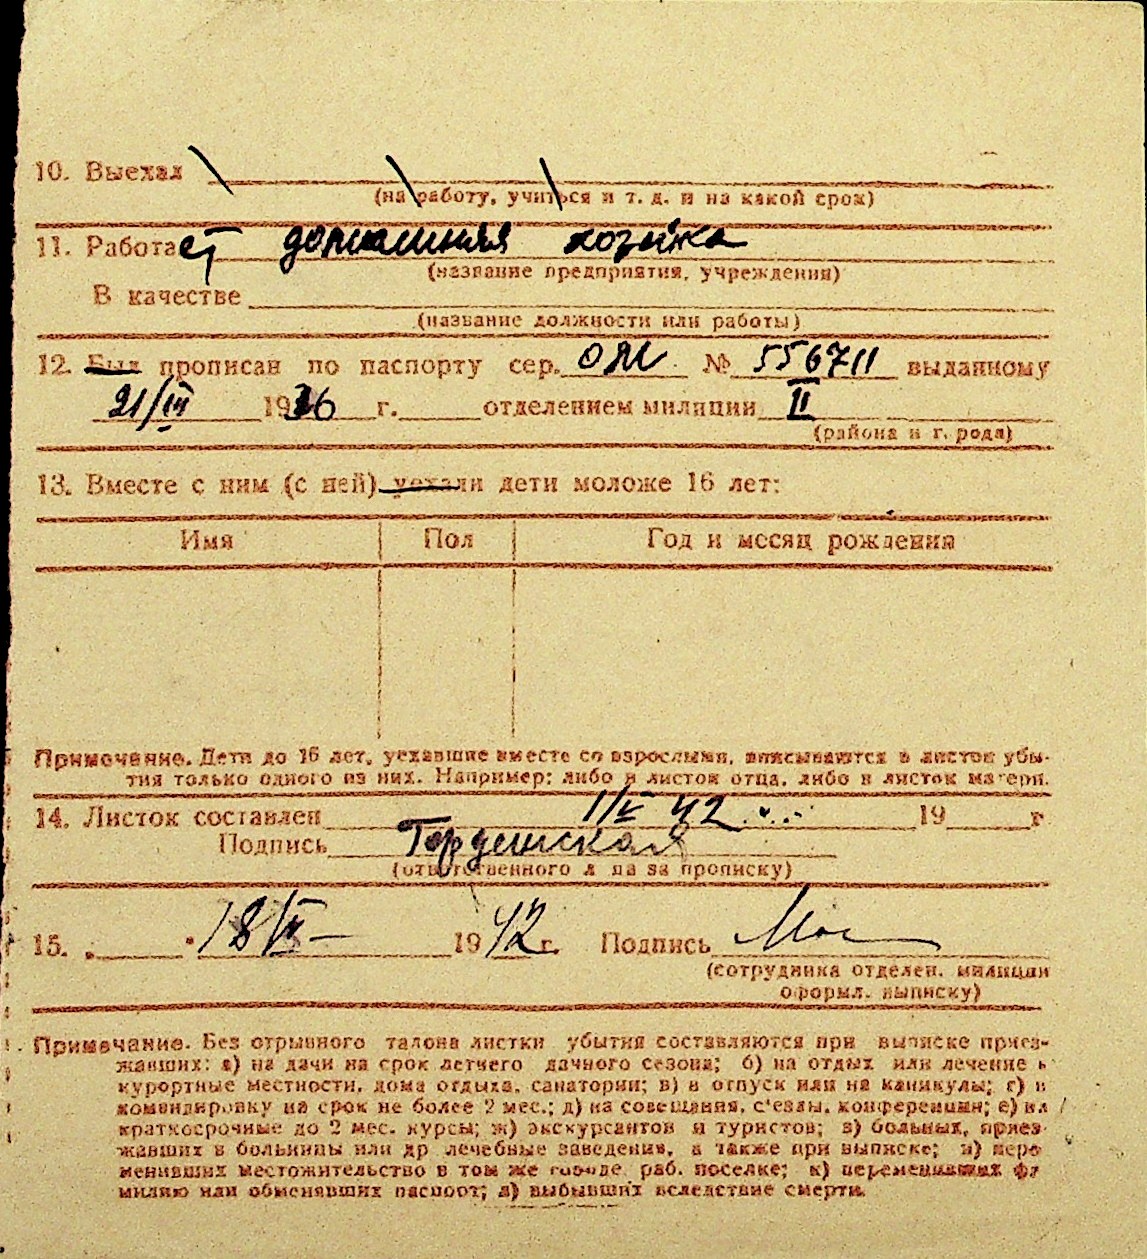 10. Выехал
(на работу, учиться и т. д. и на какой срок)
11. Работает домашняя хозяйка
(название предприятия, учреждения)
В качестве
(название должности или работы)
12. Был прописан по паспорту сер. ОМ № 556711 выданному
21/III 1936 г. отделением милиции II
(района и г. рода)
13. Вместе с ним (с ней) уехали дети моложе 16 лет:
Имя Пол Год и месяц рождения
Примечание. Дети до 16 лет, уехавшие вместе со взрослыми, вписываются в листок убы-
тия только одного из них. Например: либо в листок отца, либо в листок матери.
14. Листок составлен 42 19 г
Подпись
(ответственного л ца за прописку)
15. 18 1942 г. Подпись
(сотрудника отделен. милиции
оформл. выписку)
Примечание. Без отрывного талона листки убытия составляются при выписке приез-
жавших: а) на дачи на срок летнего дачного сезона; б) на отдых или лечение в
курортные местности, дома отдыха, санатории; в) в отпуск или на каникулы; г) в
командировку на срок не более 2 мес.; д) на совещания, с'езды, конференции; е) на
краткосрочные до 2 мес. курсы; ж) экскурсантов и туристов; з) больных, приез-
жавших в больницы или др лечебные заведения, а также при выписке; и) пере
менивших местожительство в том же городе, раб. поселке; к) переменивших фа
милию или обменявших паспорт; л) выбывших вследствие смерти.